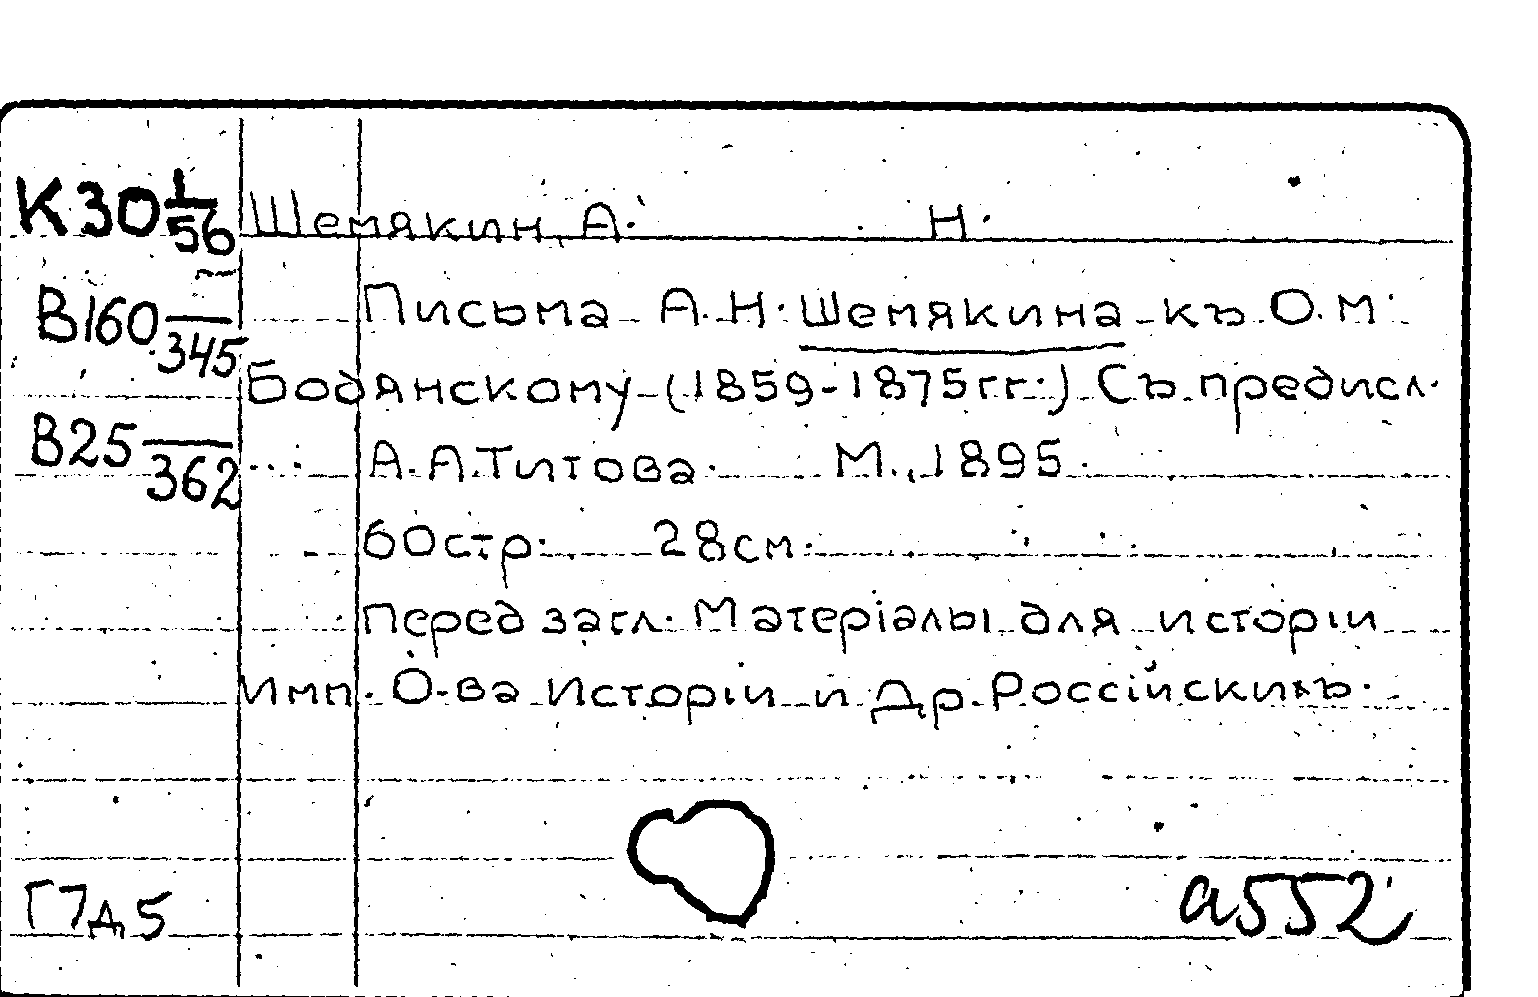 К30 1/56 Шемякин, А. Н.
В160 /345 Письма А. Н. Шемякина къ О. М.
Бодянскому (1859-1875гг.) Съ предисл.
В25 /362 А. А. Титова. М., 1895.
60стр. 28см.
Перед загл. Матеріалы для исторіи
Имп. О-ва Исторіи и Др. Россійскихъ.
Г7д5 а552